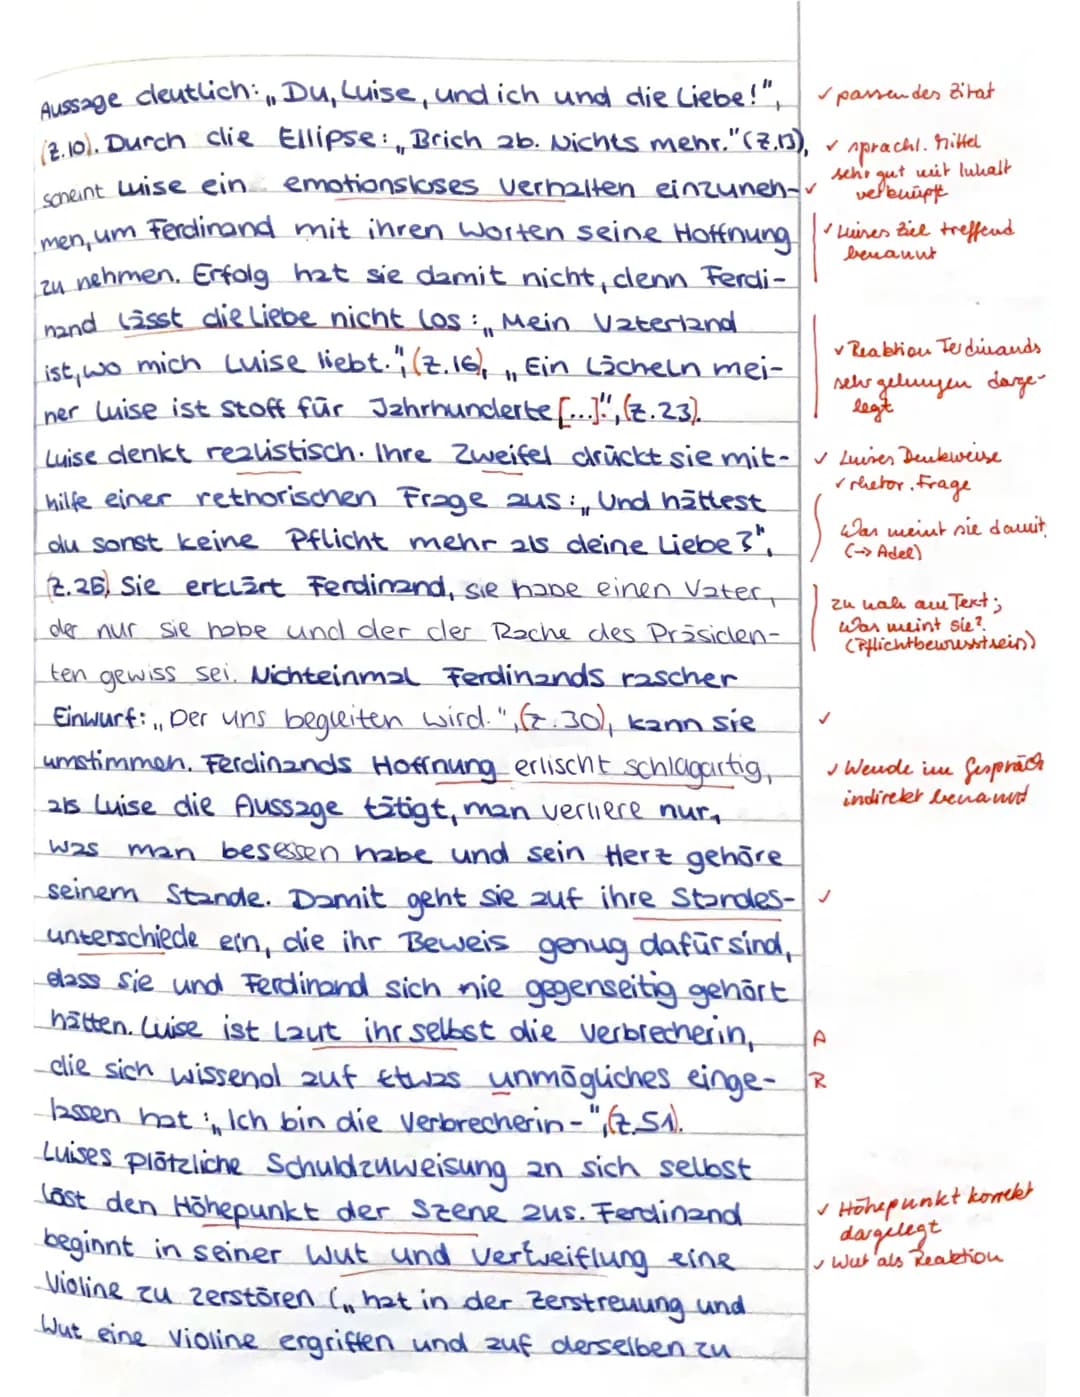 Aussage deutlich: „Du, Luise, und ich und die Liebe!",
✓ passendes Zitat
(Z.10). Durch die Ellipse: „Brich ab. Nichts mehr." (Z.13),
✓ sprachl. Mittel
sehr gut mit Inhalt
verknüpft
scheint Luise ein emotionsloses Verhalten einzuneh-
✓
men, um Ferdinand mit ihren Worten seine Hoffnung
✓ Luises Ziel treffend
benannt
zu nehmen. Erfolg hat sie damit nicht, denn Ferdi-
nand lässt die Liebe nicht los: „Mein Vaterland
ist, wo mich Luise liebt.", (Z.16), „Ein Lächeln mei-
✓ Reaktion Ferdinands
sehr gelungen darge-
legt
ner Luise ist Stoff für Jahrhunderte [...]", (Z.23).
Luise denkt realistisch. Ihre Zweifel drückt sie mit-
✓ Luises Denkweise
hilfe einer rethorischen Frage aus: „Und hättest
✓ rhetor. Frage
du sonst keine Pflicht mehr als deine Liebe?",
Was meint sie damit
(-> Adel)
(Z.26) Sie erklärt Ferdinand, sie habe einen Vater,
zu nah am Text;
der nur sie habe und der der Rache des Präsiden-
Was meint sie?
(Pflichtbewusstsein)
ten gewiss sei. Nichteinmal Ferdinands rascher
Einwurf: „Der uns begleiten wird.", (Z.30), kann sie
✓
umstimmen. Ferdinands Hoffnung erlischt schlagartig,
✓ Wende im Gespräch
indirekt benannt
als Luise die Aussage tätigt, man verliere nur,
was man besessen habe und sein Herz gehöre
seinem Stande. Damit geht sie auf ihre Standes-
✓
unterschiede ein, die ihr Beweis genug dafür sind,
dass sie und Ferdinand sich nie gegenseitig gehört
hätten. Luise ist laut ihr selbst die Verbrecherin,
A
die sich wissend auf etwas unmögliches einge-
R
lassen hat: „Ich bin die Verbrecherin-", (Z.51).
Luises plötzliche Schuldzuweisung an sich selbst
löst den Höhepunkt der Szene aus. Ferdinand
✓ Höhepunkt korrekt
dargelegt
beginnt in seiner Wut und Verzweiflung eine
✓ Wut als Reaktion
Violine zu zerstören („hat in der Zerstreuung und
Wut eine Violine ergriffen und auf derselben zu